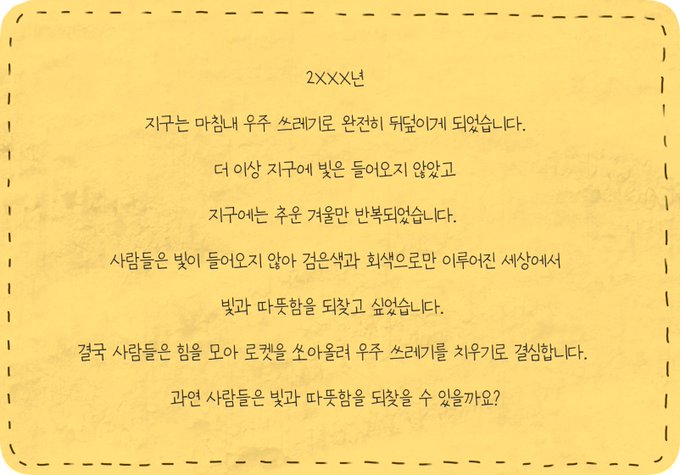 2XXX년
지구는 마침내 우주 쓰레기로 완전히 뒤덮이게 되었습니다.
더 이상 지구에 빛은 들어오지 않았고
지구에는 추운 겨울만 반복되었습니다.
사람들은 빛이 들어오지 않아 검은색과 회색으로만 이루어진 세상에서
빛과 따뜻함을 되찾고 싶었습니다.
결국 사람들은 힘을 모아 로켓을 쏘아올려 우주 쓰레기를 치우기로 결심합니다.
과연 사람들은 빛과 따뜻함을 되찾을 수 있을까요?